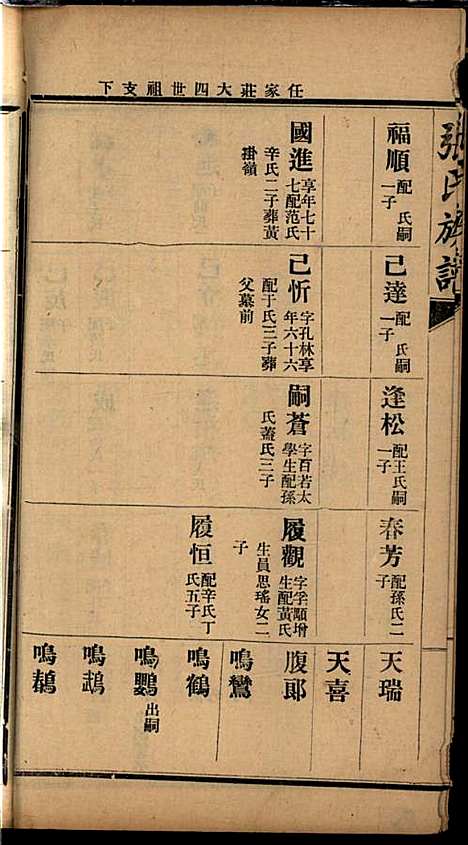 任家莊大四世祖支下
張氏族譜
福順 配 氏嗣一子
國進 享年七十七配范氏辛氏二子葬黃掛嶺
己達 配 氏嗣一子
己忻 字孔林享年六十六配于氏三子葬父墓前
逢松 配王氏嗣一子
嗣蒼 字百若太學生配孫氏蓋氏三子
春芳 配孫氏二子
履觀 字孚顒增生配黃氏生員思瑤女二子
履恒 配辛氏丁氏五子
天瑞
天喜
腹郎
鳴鸞
鳴鶴
鳴鸚 出嗣
鳴鵡
鳴鵲